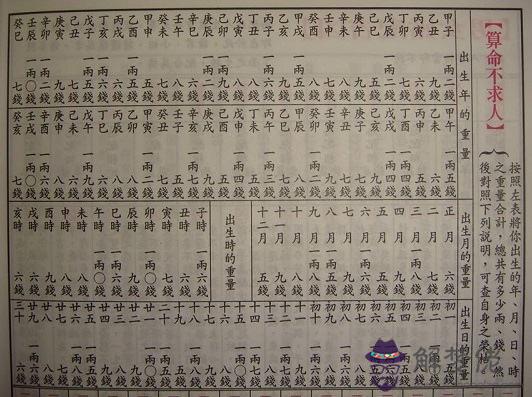 【算命不求人】
按照左表將你出生的年、月、日、時
之重量合計,總共有多少兩、錢,然
後對照下列說明,可查自身之榮枯
出生年的重量
甲子 一兩二錢
乙丑 九錢
丙寅 六錢
丁卯 七錢
戊辰 一兩二錢
己巳 五錢
庚午 九錢
辛未 八錢
壬申 七錢
癸酉 八錢
甲戌 一兩五錢
乙亥 九錢
丙子 一兩六錢
丁丑 八錢
戊寅 八錢
己卯 一兩九錢
庚辰 一兩二錢
辛巳 六錢
壬午 八錢
癸未 七錢
甲申 五錢
乙酉 一兩五錢
丙戌 六錢
丁亥 一兩六錢
戊子 一兩五錢
己丑 七錢
庚寅 九錢
辛卯 一兩二錢
壬辰 一兩〇錢
癸巳 七錢
甲午 一兩五錢
乙未 六錢
丙申 五錢
丁酉 一兩四錢
戊戌 一兩四錢
己亥 九錢
庚子 七錢
辛丑 七錢
壬寅 九錢
癸卯 一兩二錢
甲辰 八錢
乙巳 七錢
丙午 一兩三錢
丁未 五錢
戊申 一兩四錢
己酉 五錢
庚戌 九錢
辛亥 一兩七錢
壬子 五錢
癸丑 七錢
甲寅 一兩二錢
乙卯 八錢
丙辰 八錢
丁巳 六錢
戊午 一兩九錢
己未 六錢
庚申 八錢
辛酉 一兩六錢
壬戌 一兩〇錢
癸亥 七錢
出生月的重量
正月 六錢
二月 七錢
三月 一兩八錢
四月 九錢
五月 五錢
六月 一兩六錢
七月 九錢
八月 一兩五錢
九月 一兩八錢
十月 八錢
十一月 九錢
十二月 五錢
出生時的重量
子時 一兩六錢
丑時 六錢
寅時 七錢
卯時 一兩〇錢
辰時 九錢
巳時 一兩六錢
午時 一兩〇錢
未時 八錢
申時 八錢
酉時 九錢
戌時 六錢
亥時 六錢
出生日的重量
初一 五錢
初二 一兩〇錢
初三 八錢
初四 一兩五錢
初五
初六
初七 八錢
初八 一兩六錢
初九 八錢
初十 一兩六錢
十一 九錢
十二 一兩七錢
十三 八錢
十四 一兩七錢
十五 一兩〇錢
十六 八錢
十七 九錢
十八 一兩八錢
十九 五錢
二十 一兩五錢
廿一 一兩〇錢
廿二 九錢
廿三 八錢
廿四 九錢
廿五 一兩五錢
廿六 一兩八錢
廿七 七錢
廿八 八錢
廿九 一兩六錢
三十 六錢